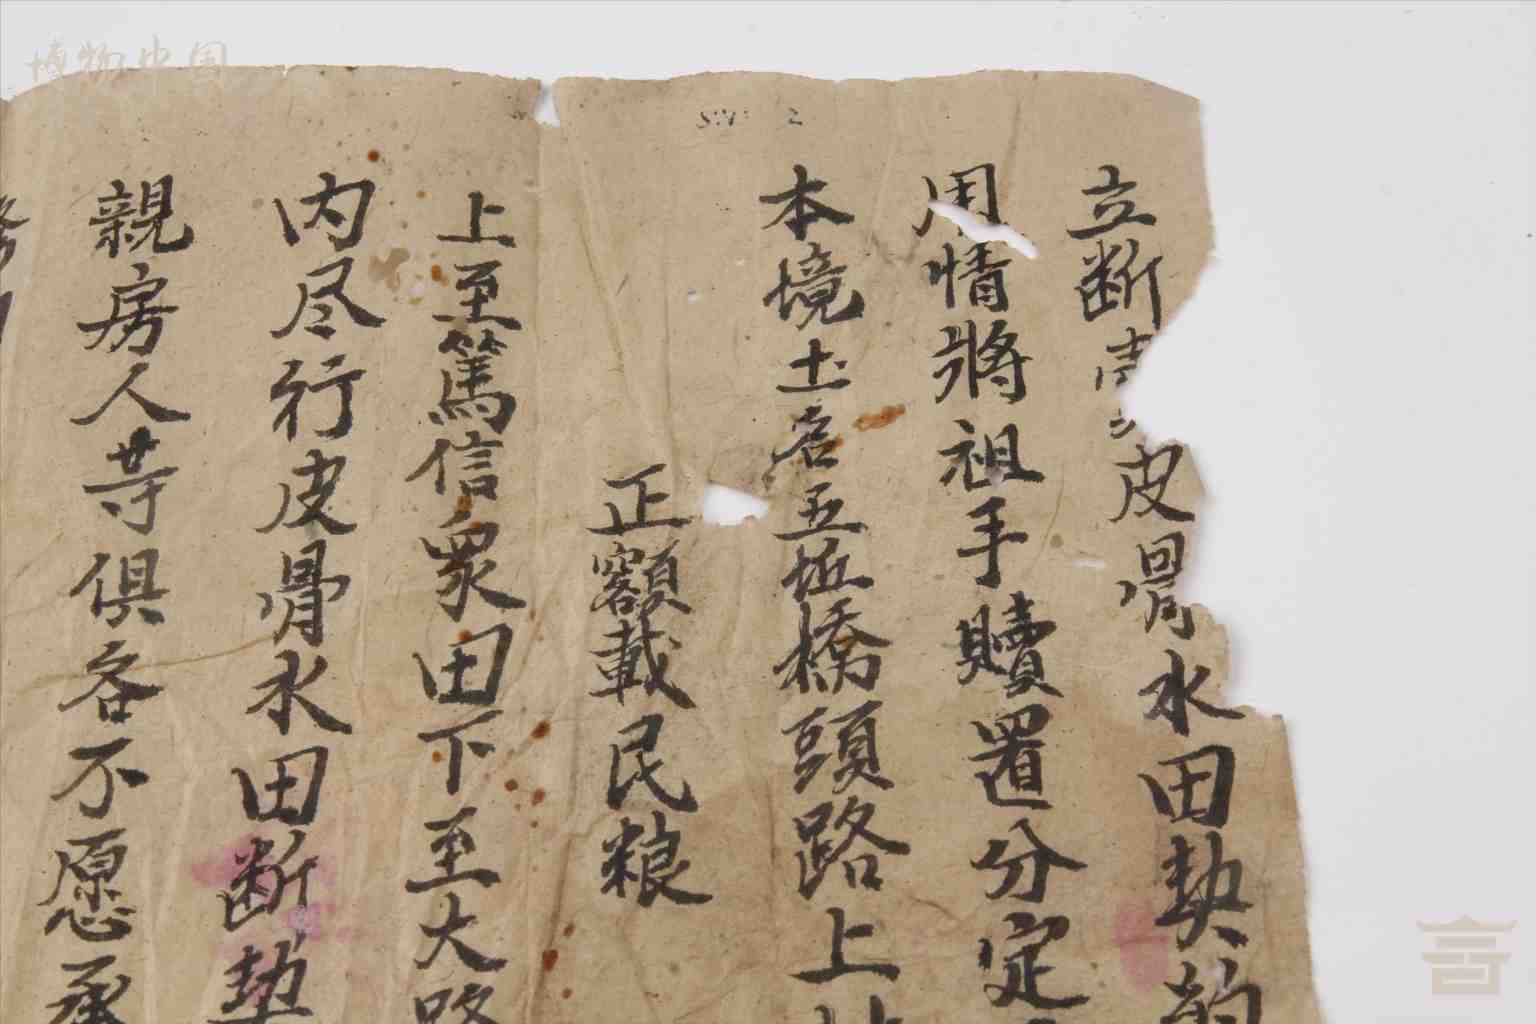 立断賣皮骨水田契約
用情將祖手贖置分定
本境土名五坵橋頭路上
正額載民粮
上至篤信眾田下至大路
内尽行皮骨水田断契
親房人等俱各不愿承
博物中国